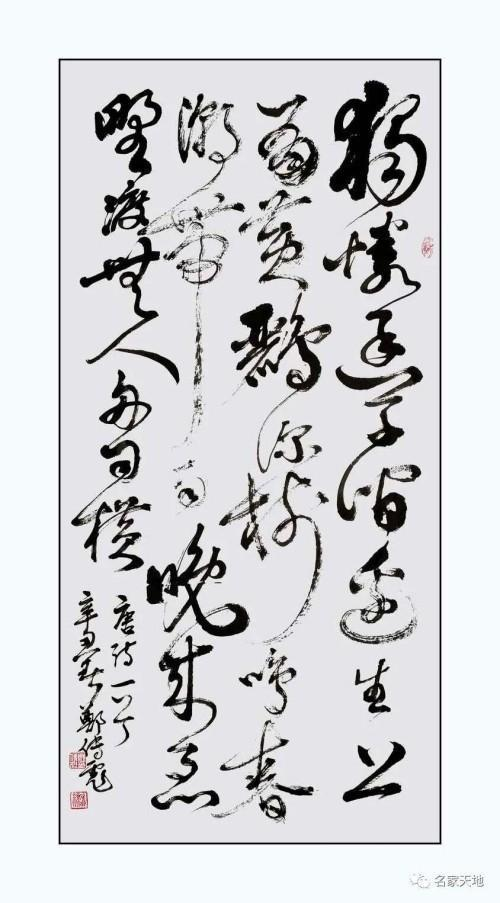 獨憐幽草澗邊生上
有黃鸝深樹鳴春
潮帶雨晚來急
野渡無人舟自橫
唐詩一首
辛 鄭
名家天地